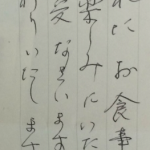 れにお食事
楽しみにいた
なさいます
りいたします